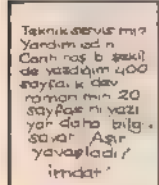 Teknik servis mın
Yardım edin
Canlı nas b şekil
de yazdığım 400
sayfalık dev
roman mın 20
sayfas nı yazı
yor daha bilg.
sayar Aşır
yavaşladı!
imdat